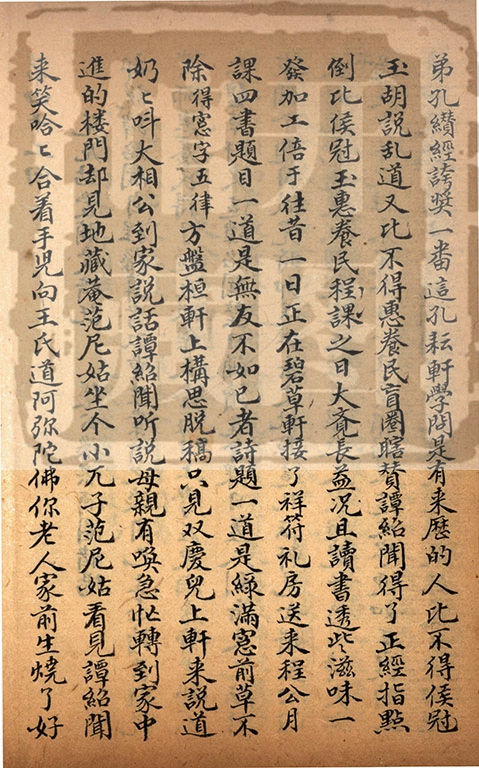 弟孔纉經誇奬一畨這孔耘軒學问是有来歴的人比不得侯冠
玉胡説乱道又比不得惠養民盲圈瞎賛譚紹聞得了正經指點
倒比侯冠玉惠養民程課之日大有長益况且讀書透些滋味一
發加工倍于往昔一日正在碧草軒接了祥符礼房送来程公月
課四書題目一道是無友不如己者詩題一道是綠滿窓前草不
除得窓字五律方盤桓軒上構思脱稿只見双慶兒上軒来説道
奶〻呌大相公到家説話譚紹聞听説母親有喚急忙轉到家中
進的楼門却見地藏菴范尼姑坐个小兀子范尼姑看見譚紹聞
来笑哈〻合着手児向王氏道阿弥陀佛你老人家前生燒了好